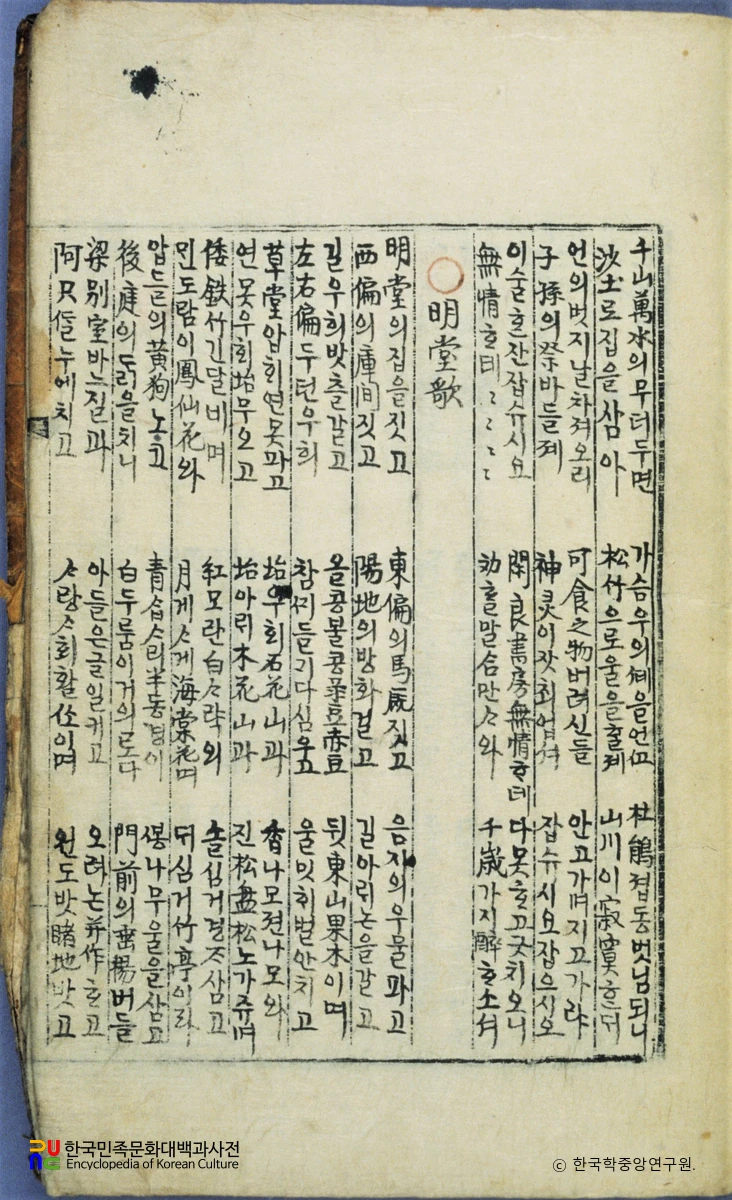 千山萬水의무더두면 가슴우의셰을언고 杜鵑졉동벗님되니
沙土로집을삼아 松竹으로울을흘졔 山川이寂寞흔더
언의벗지날차져오리 可食之物버려신들 안고가며지고가랴
子孫의祭바들졔 神灵이잣최업셔 잡슈시요잡으시오
이술흔잔잡슈시요 閑良書房無情흐데 다못흐고긋치오니
無情흐되〻〻〻〻 勸흘말合만〻와 千歲가지醉흐소셔
明堂歌
明堂의집을짓고 東偏의馬厩짓고 음지의우물파고
西偏의庫間짓고 陽地의방화걸고 길아뤼논을갈고
길우희밧츨갈고 올콩불콩菉豆赤豆 뒷東山果木이며
左右偏두던우희 참찌들기다심우고 울밋희벌안치고
草堂압희연못파고 坮우희石花山과 香나모젼나모와
연못우희坮무으고 坮아뤼木花山과 진松盘松노가쥬며
倭铁竹긴달비며 紅모란白〻락외 솔심거졍즈삼고
민도람이鳳仙花와 月게〻게海棠花며 뒤심거竹亭이라
압들의黃狗노코 青습〻리半동경이 뽕나무울을삼고
後庭의도리을치니 白두룸이거의로다 門前의垂楊버들
梁別室바느질과 아들은글일키고 오려논幷作흐고
阿只信누에치고 〻랑〻회활소이며 원도밧睹地밧고
한국민족문화대백과사전
Encyclopedia of Korean Culture
© 한국학중앙연구원.